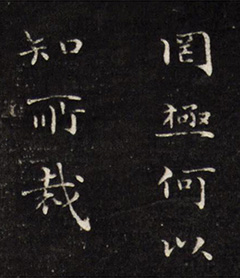 罔極何以
知所裁